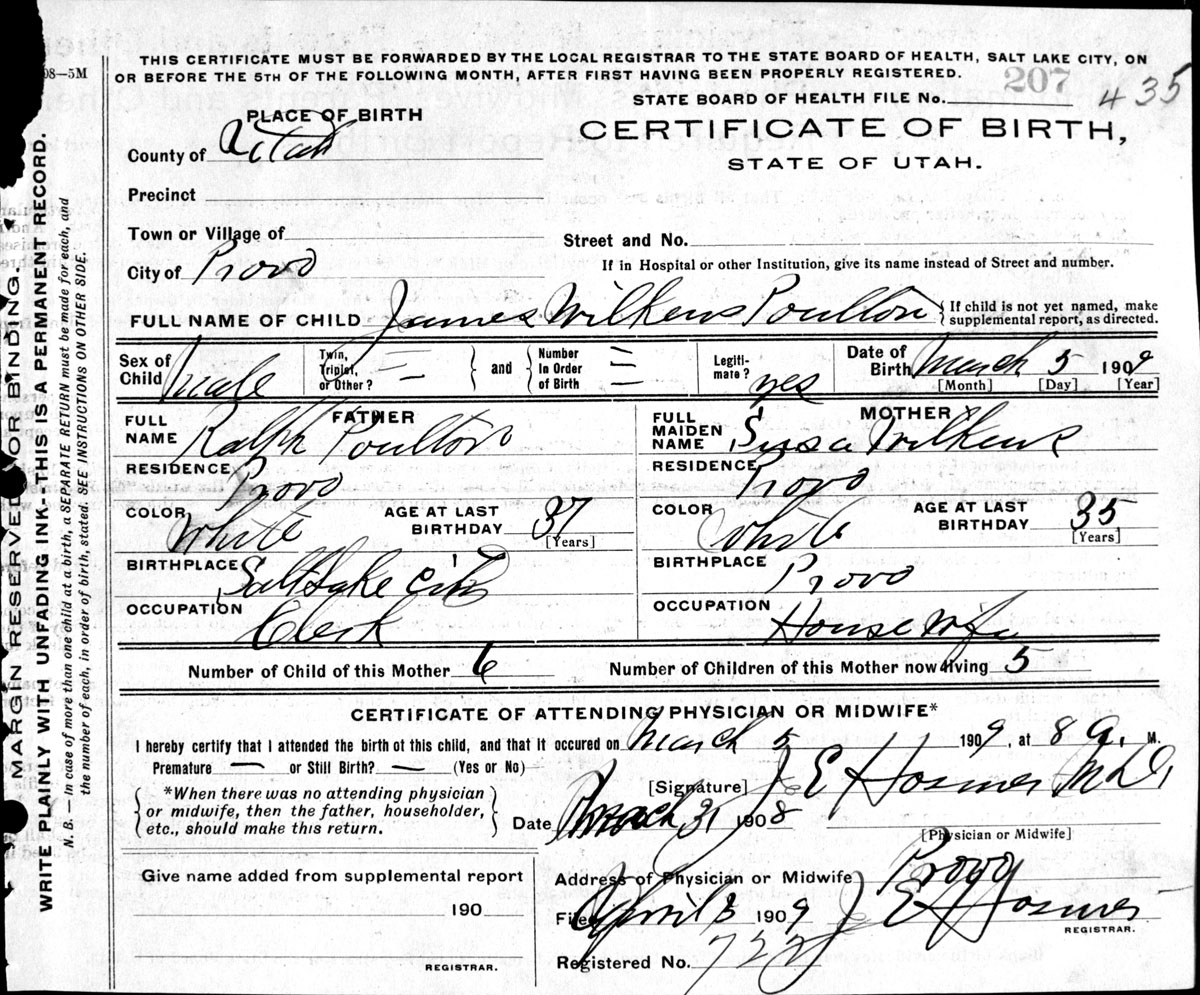 THIS CERTIFICATE MUST BE FORWARDED BY THE LOCAL REGISTRAR TO THE STATE BOARD OF HEALTH, SALT LAKE CITY, ON
OR BEFORE THE 5TH OF THE FOLLOWING MONTH, AFTER FIRST HAVING BEEN PROPERLY REGISTERED.
08—5M
207
STATE BOARD OF HEALTH FILE No. 435
PLACE OF BIRTH
CERTIFICATE OF BIRTH,
STATE OF UTAH.
County of Utah
Precinct
Town or Village of
Street and No.
City of Provo
If in Hospital or other Institution, give its name instead of Street and number.
FULL NAME OF CHILD James Wilkens Poulton { If child is not yet named, make
supplemental report, as directed.
Sex of Child male
Twin, Triplet, or Other? —
and
Number In Order of Birth
Legitimate? yes
Date of Birth March 5 1909
[Month] [Day] [Year]
FATHER
FULL NAME Ralph Poulton
RESIDENCE Provo
COLOR White AGE AT LAST BIRTHDAY 37
[Years]
BIRTHPLACE Salt Lake City
OCCUPATION Clerk
MOTHER
FULL MAIDEN NAME Susa Wilkens
RESIDENCE Provo
COLOR White AGE AT LAST BIRTHDAY 35
[Years]
BIRTHPLACE Provo
OCCUPATION House wife
Number of Child of this Mother 6 Number of Children of this Mother now living 5
CERTIFICATE OF ATTENDING PHYSICIAN OR MIDWIFE*
I hereby certify that I attended the birth of this child, and that it occured on March 5 1909, at 8 a. M.
Premature — or Still Birth? — (Yes or No)
*When there was no attending physician
or midwife, then the father, householder,
etc., should make this return.
[Signature] J E Hosmer M.D.
Date March 31 1908
[Physician or Midwife]
Give name added from supplemental report
190
REGISTRAR.
Address of Physician or Midwife Provo
Filed April 3 1909 J E Hosmer
REGISTRAR.
Registered No. 722
MARGIN RESERVED FOR BINDING.
WRITE PLAINLY WITH UNFADING INK—THIS IS A PERMANENT RECORD.
N. B.—In case of more than one child at a birth, a SEPARATE RETURN must be made for each, and
the number of each, in order of birth, stated. SEE INSTRUCTIONS ON OTHER SIDE.